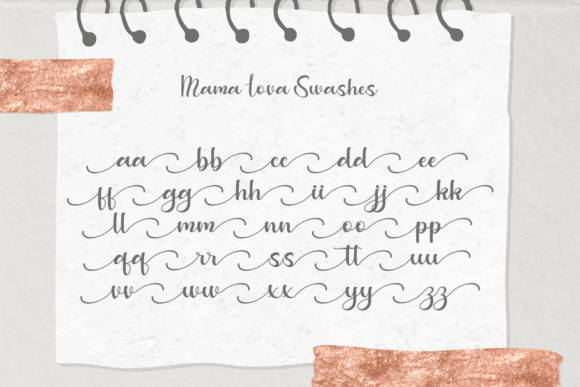 Mama lova Swashes
aa bb cc dd ee
ff gg hh ii jj kk
ll mm nn oo pp
qq rr ss tt uu
vv ww xx yy zz